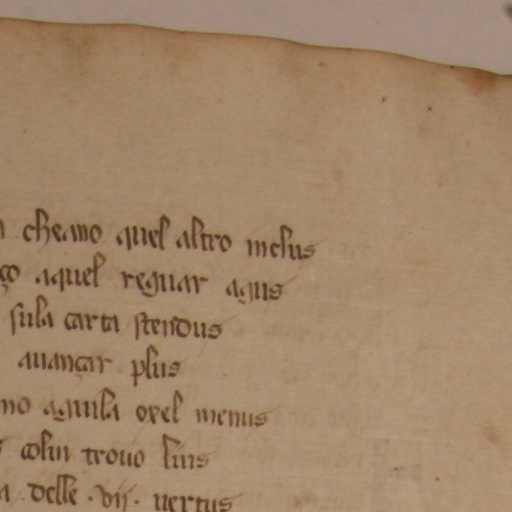 cheano quel altro inclus
ço aquel reguar agus
sula carta stendus
auançar plus
mo aquila oxel menus
colui trouo lus
delle .vij. uertus